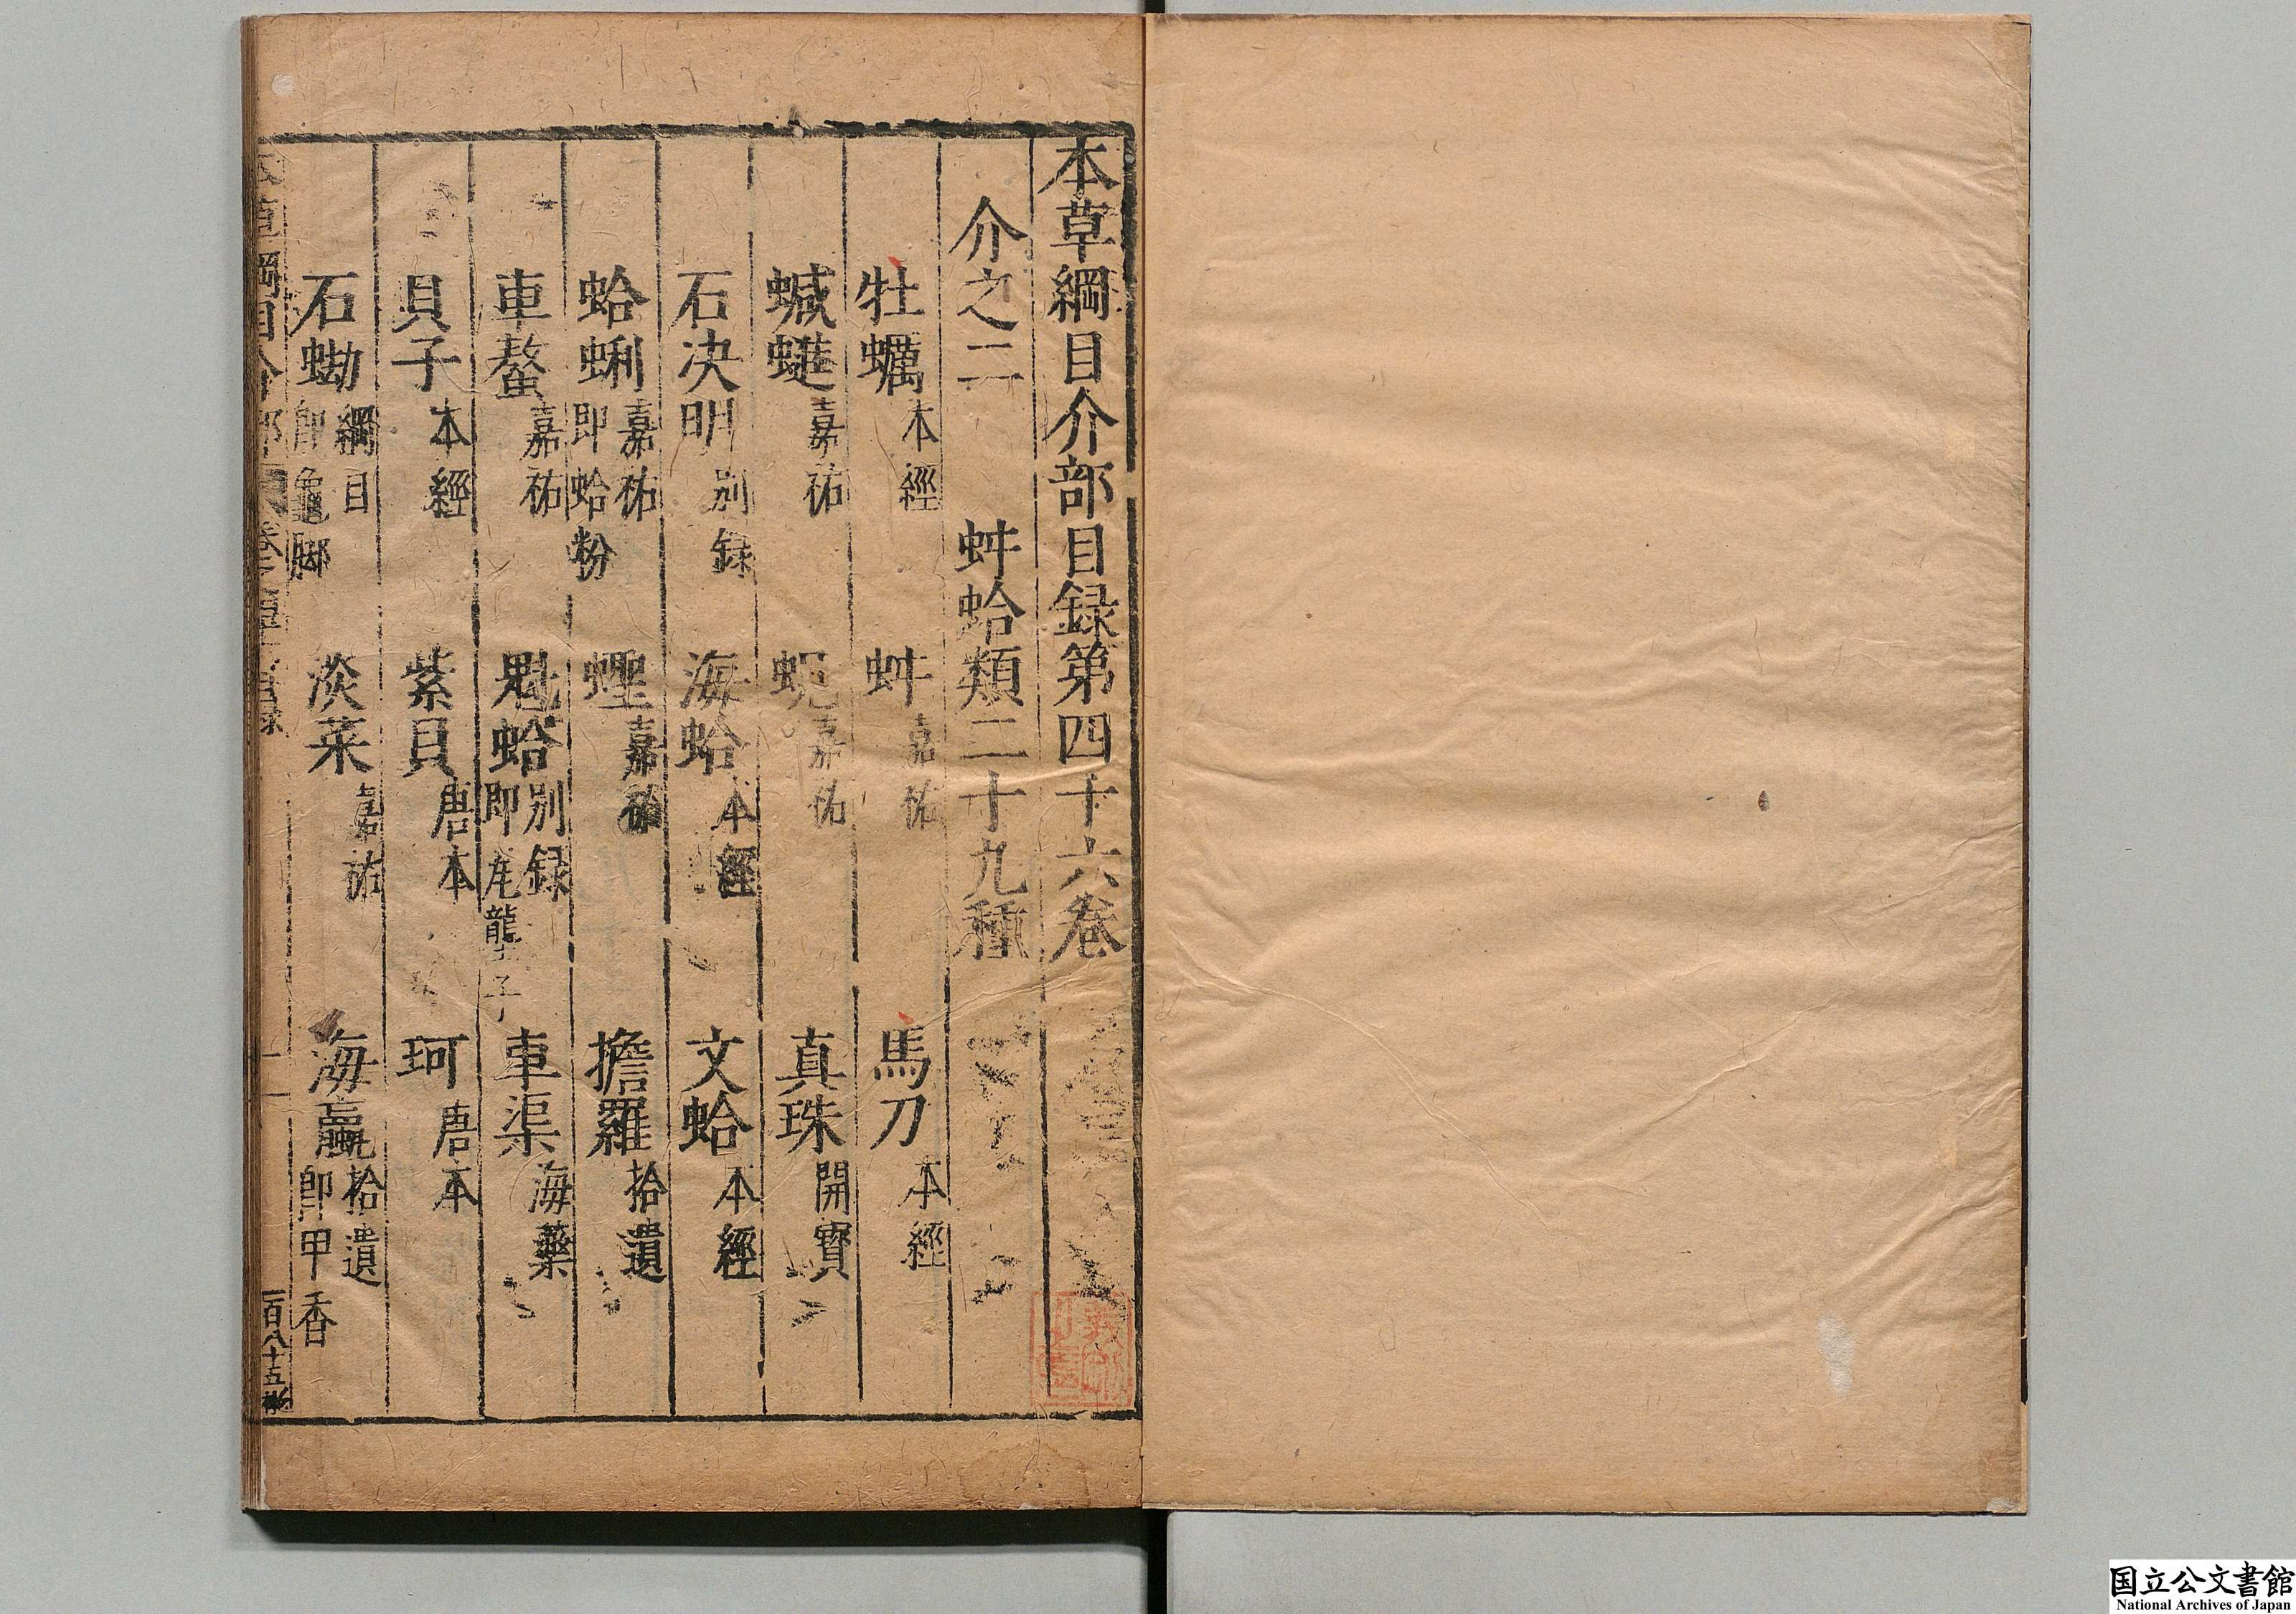 本草綱目介部目録第四十六卷
介之二　蚌蛤類二十九種
牡蠣本經　蚌嘉祐　馬刀本經
蝛𧍧嘉祐　蜆嘉祐　真珠開寳
石决明别録　海蛤本經　文蛤本經
蛤蜊嘉祐即蛤粉　蟶嘉祐　擔羅拾遺
車螯嘉祐　魁蛤别録即瓦壟子　車渠海藥
貝子本經　紫貝唐本　珂唐本
石蜐綱目即龜脚　淡菜嘉祐　海蠃拾遺即甲香
一百八十五
国立公文書館
National Archives of Japan